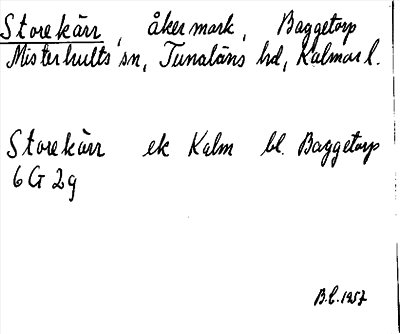 Storekärr, åkermark, Baggetorp
Misterhults sn, Tunaläns hd, Kalmar l.
Storekärr ek Kalm bl. Baggetorp
6 G 2g
B.L. 1957